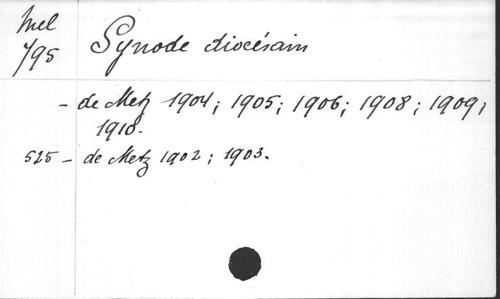 Mel
795
Synode diocésain
- de Metz 1904; 1905; 1906; 1908; 1909;
1910.
525 - de Metz 1902; 1903.